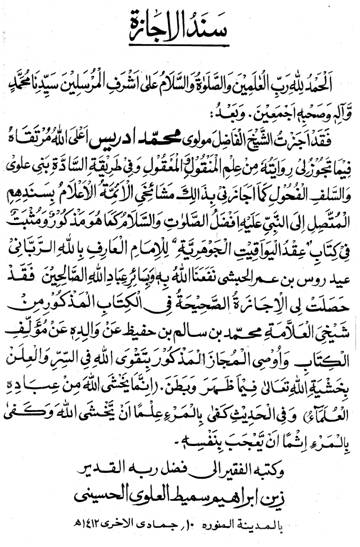 سَنَدُ الاِجَازَة
اَلْحَمْدُ لِلّٰهِ رَبِّ الْعٰلَمِيْنَ وَالصَّلٰوةُ وَالسَّلَامُ عَلٰى اَشْرَفِ الْمُرْسَلِيْنَ سَيِّدِنَا مُحَمَّدٍ
وَآلِهٖ وَصَحْبِهٖ اَجْمَعِيْنَ۔ وَبَعْدُ:
فَقَدْ اَجَزْتُ الشَّيْخَ الْفَاضِلَ مولوی محمّد ادریس اَعْلَى اللهُ مُرْتَقَاهُ
فِيْمَا تَجُوْزُ لِيْ رِوَايَتُهٗ مِنْ عِلْمِ الْمَنْقُوْلِ وَالْمَعْقُوْلِ وَفِيْ طَرِيْقَةِ السَّادَةِ بَنِيْ عَلَوِيْ
وَالسَّلَفِ الْفُحُوْلِ كَمَا اَجَازَنِيْ بِذَالِكَ مَشَائِخِي الْاَئِمَّةُ الْاَعْلَامُ بِسَنَدِهِمِ
الْمُتَّصِلِ اِلَى النَّبِيِّ عَلَيْهِ اَفْضَلُ الصَّلَوٰتِ وَالسَّلَامُ كَمَا هُوَ مَذْكُوْرٌ وَمُثْبَتٌ
فِيْ كِتَابِ "عِقْدُ الْيَوَاقِيْتِ الْجَوْهَرِيَّةِ" لِلْاِمَامِ الْعَارِفِ بِاللهِ الرَّبَّانِيْ
عيد روس بن عمر الحبشى نَفَعَنَا اللهُ بِهٖ وَبِسَائِرِ عِبَادِ اللهِ الصَّالِحِيْنَ فَقَدْ
حَصَلَتْ لِي الْاِجَازَةُ الصَّحِيْحَةُ فِي الْكِتَابِ الْمَذْكُوْرِ مِنْ
شَيْخِي الْعَلَّامَةِ محمد بن سالم بن حفيظ عَنْ وَالِدِهٖ عَنْ مُؤَلِّفِ
الْكِتَابِ وَاُوْصِي الْمُجَازَ الْمَذْكُوْرَ بِتَقْوَى اللهِ فِي السِّرِّ وَالْعَلَنِ
بِخَشْيَةِ اللهِ تَعَالٰى فِيْمَا ظَهَرَ وَبَطَنَ۔ (اِنَّمَا يَخْشَى اللهَ مِنْ عِبَادِهِ
الْعُلَمَآءُ) وَفِي الْحَدِيْثِ كَفٰى بِالْمَرْءِ عِلْمًا اَنْ يَخْشَى اللهَ وَكَفٰى
بِالْمَرْءِ اِثْمًا اَنْ يُعْجَبَ بِنَفْسِهٖ۔
وكتبه الفقير الى فضل ربه القدير
زين ابراهيم سميط العلوى الحسينى
بالمدينة المنوره ۱۰/ جمادى الاخرى ۱۴۱۲ھ